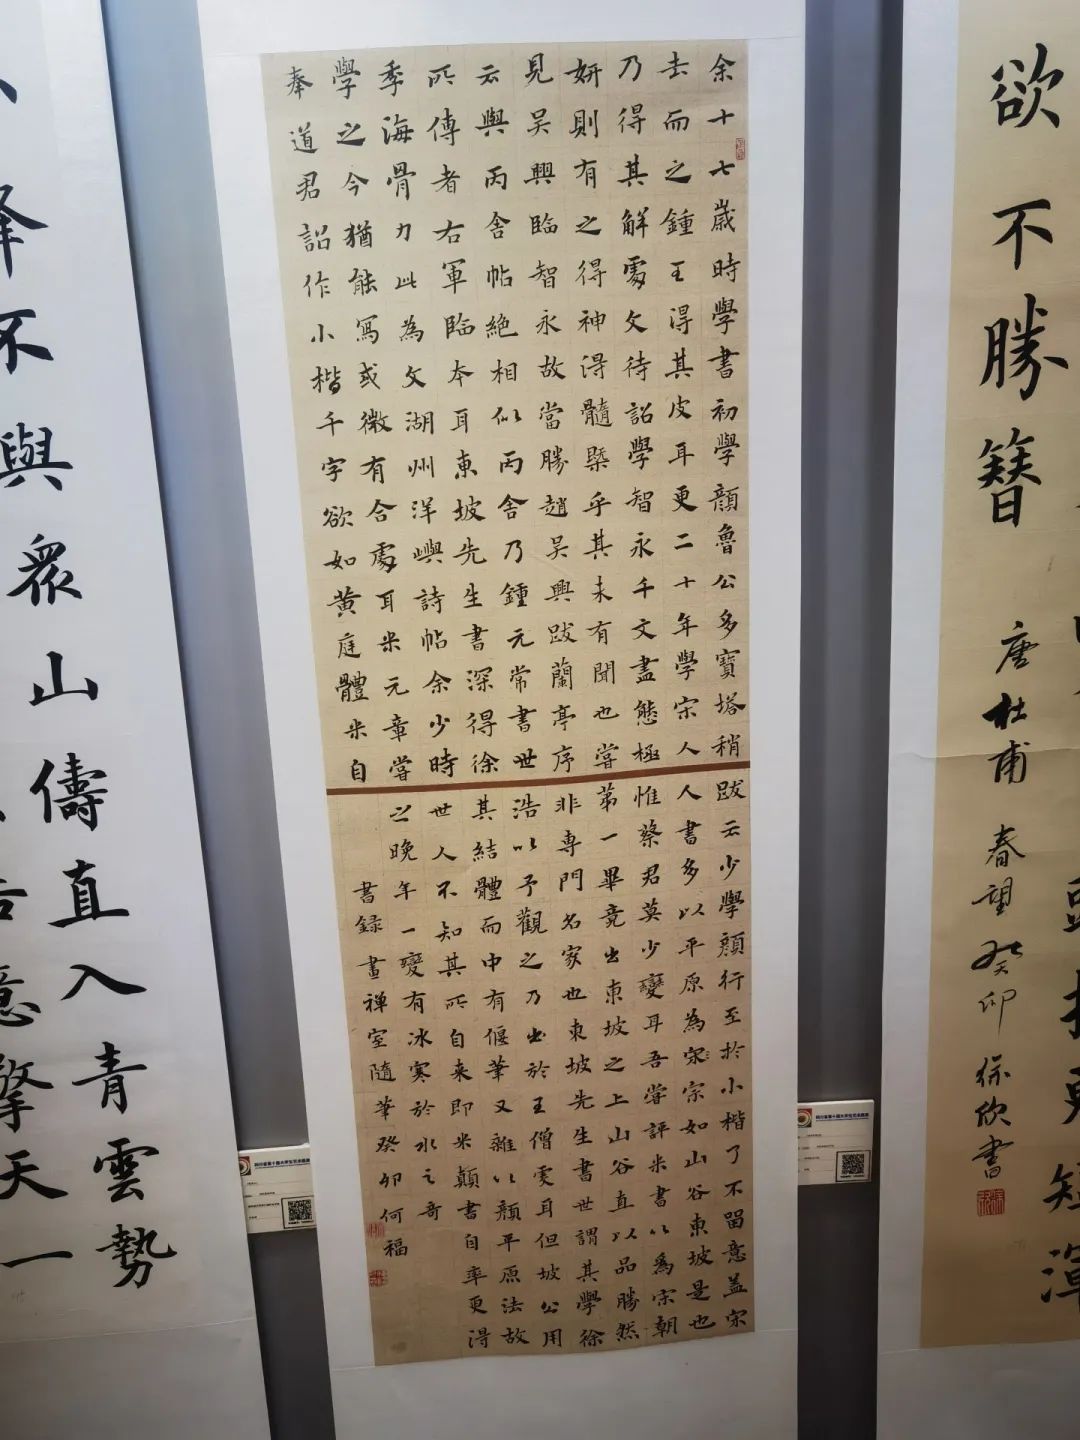 欲不勝簪
唐杜甫春望癸卯徐欣書
余十七歲時學書初學顏魯公多寶塔稍
去而之鍾王得其皮耳更二十年學宋人
乃得其解處文待詔學智永千文盡態極
妍則有之得神得髓槩乎其未有聞也嘗
見吴興臨智永故當勝趙吴興跋蘭亭序
云與丙舍帖絶相似丙舍乃鍾元常書世
所傳者右軍臨本耳東坡先生書深得徐
季海骨力此為文湖州洋嶼詩帖余少時
學之今猶能寫或微有合處耳米元章嘗
奉道君詔作小楷千字欲如黃庭體米自
跋云少學顏行至於小楷了不留意盖宋
人書多以平原為宗如山谷東坡是也
惟蔡君莫少變耳吾嘗評米書以為宋朝
第一畢竟出東坡之上山谷直以品勝然
非専門名家也東坡先生書世謂其學徐
浩以予觀之乃出於王僧虔耳但坡公用
其結體而中有偃筆又雜以顏平原法故
世人不知其所自来即米顛書自率更得
之晚年一變有冰寒於水之奇
書録畫禪室隨筆癸卯何福
不與衆山儔直入青雲勢
意擎天一